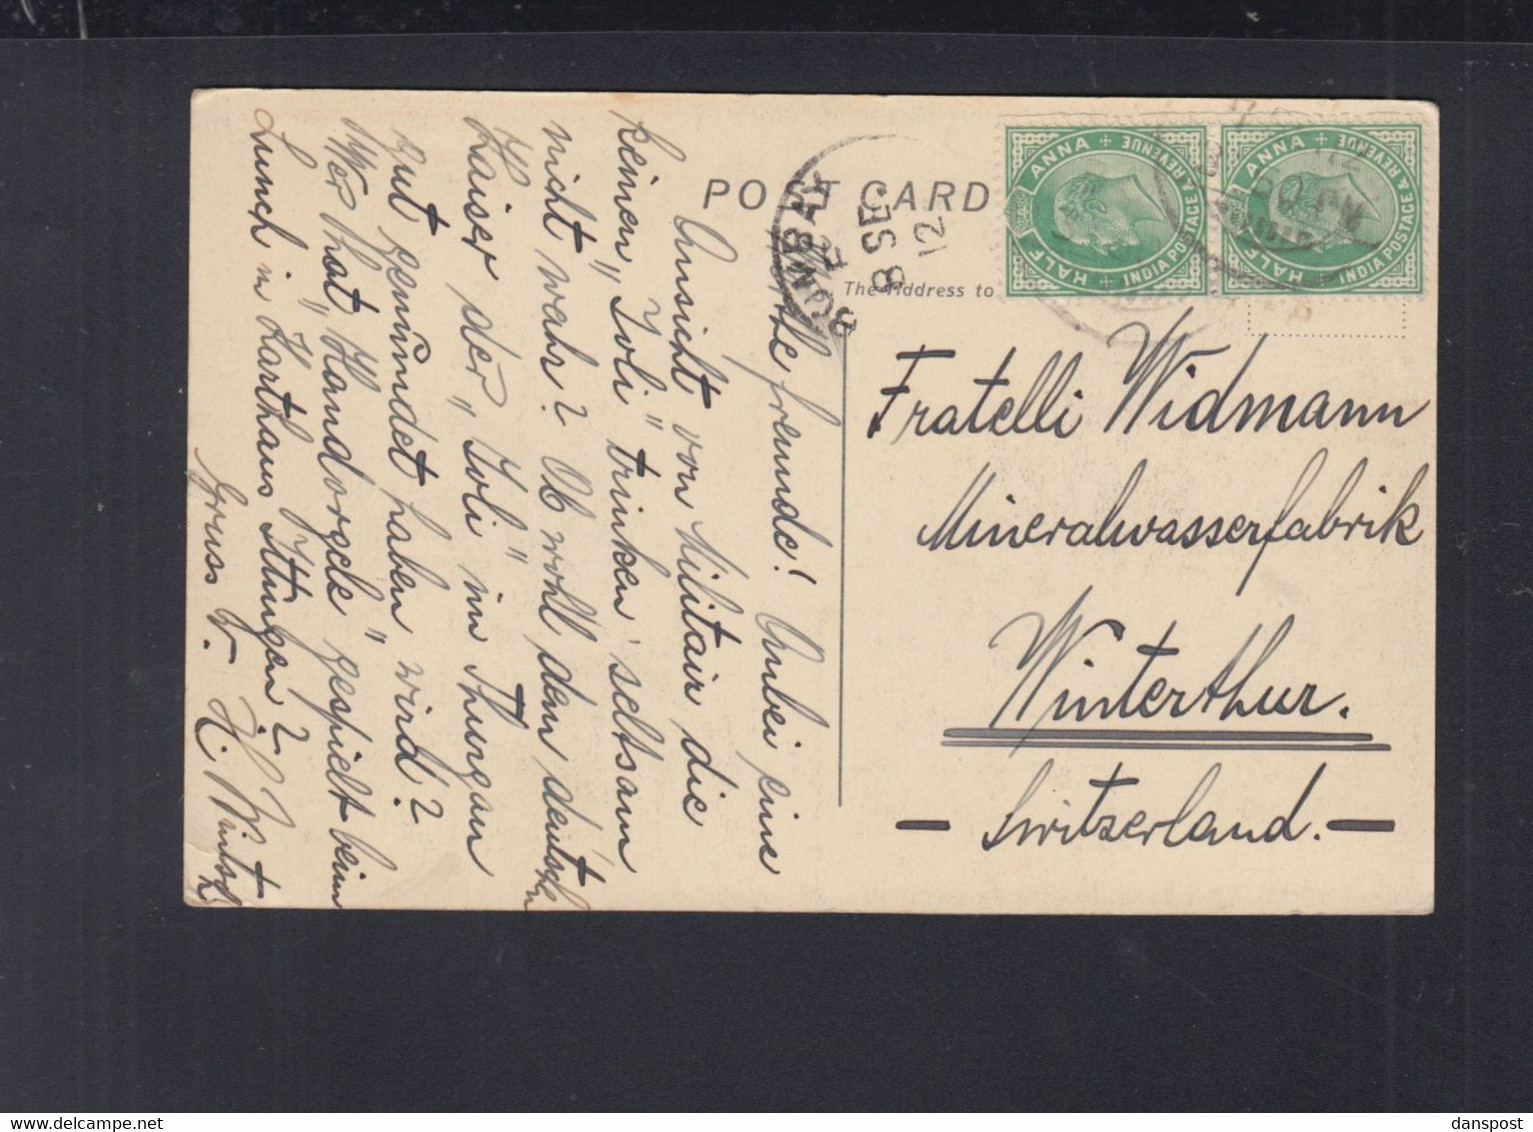 POST CARD
The Address to
BOMBAY
F
8 SE.
12
HALF ANNA
INDIA POSTAGE & REVENUE
HALF ANNA
INDIA POSTAGE & REVENUE
Fratelli Widmann
Mineralwasserfabrik
Winterthur.
— Switzerland. —
freunde! Anbei eine
Ansicht von Militair die
keinen „Joli" trinken, seltsam
nicht wahr? Ob wohl dem deutschen
Kaiser der „Joli" im Thurgau
gut gemundet haben wird?
Wer hat „Handorgele" gespielt beim
Lunch in Karthaus Ittingen?
Gruss
danspost